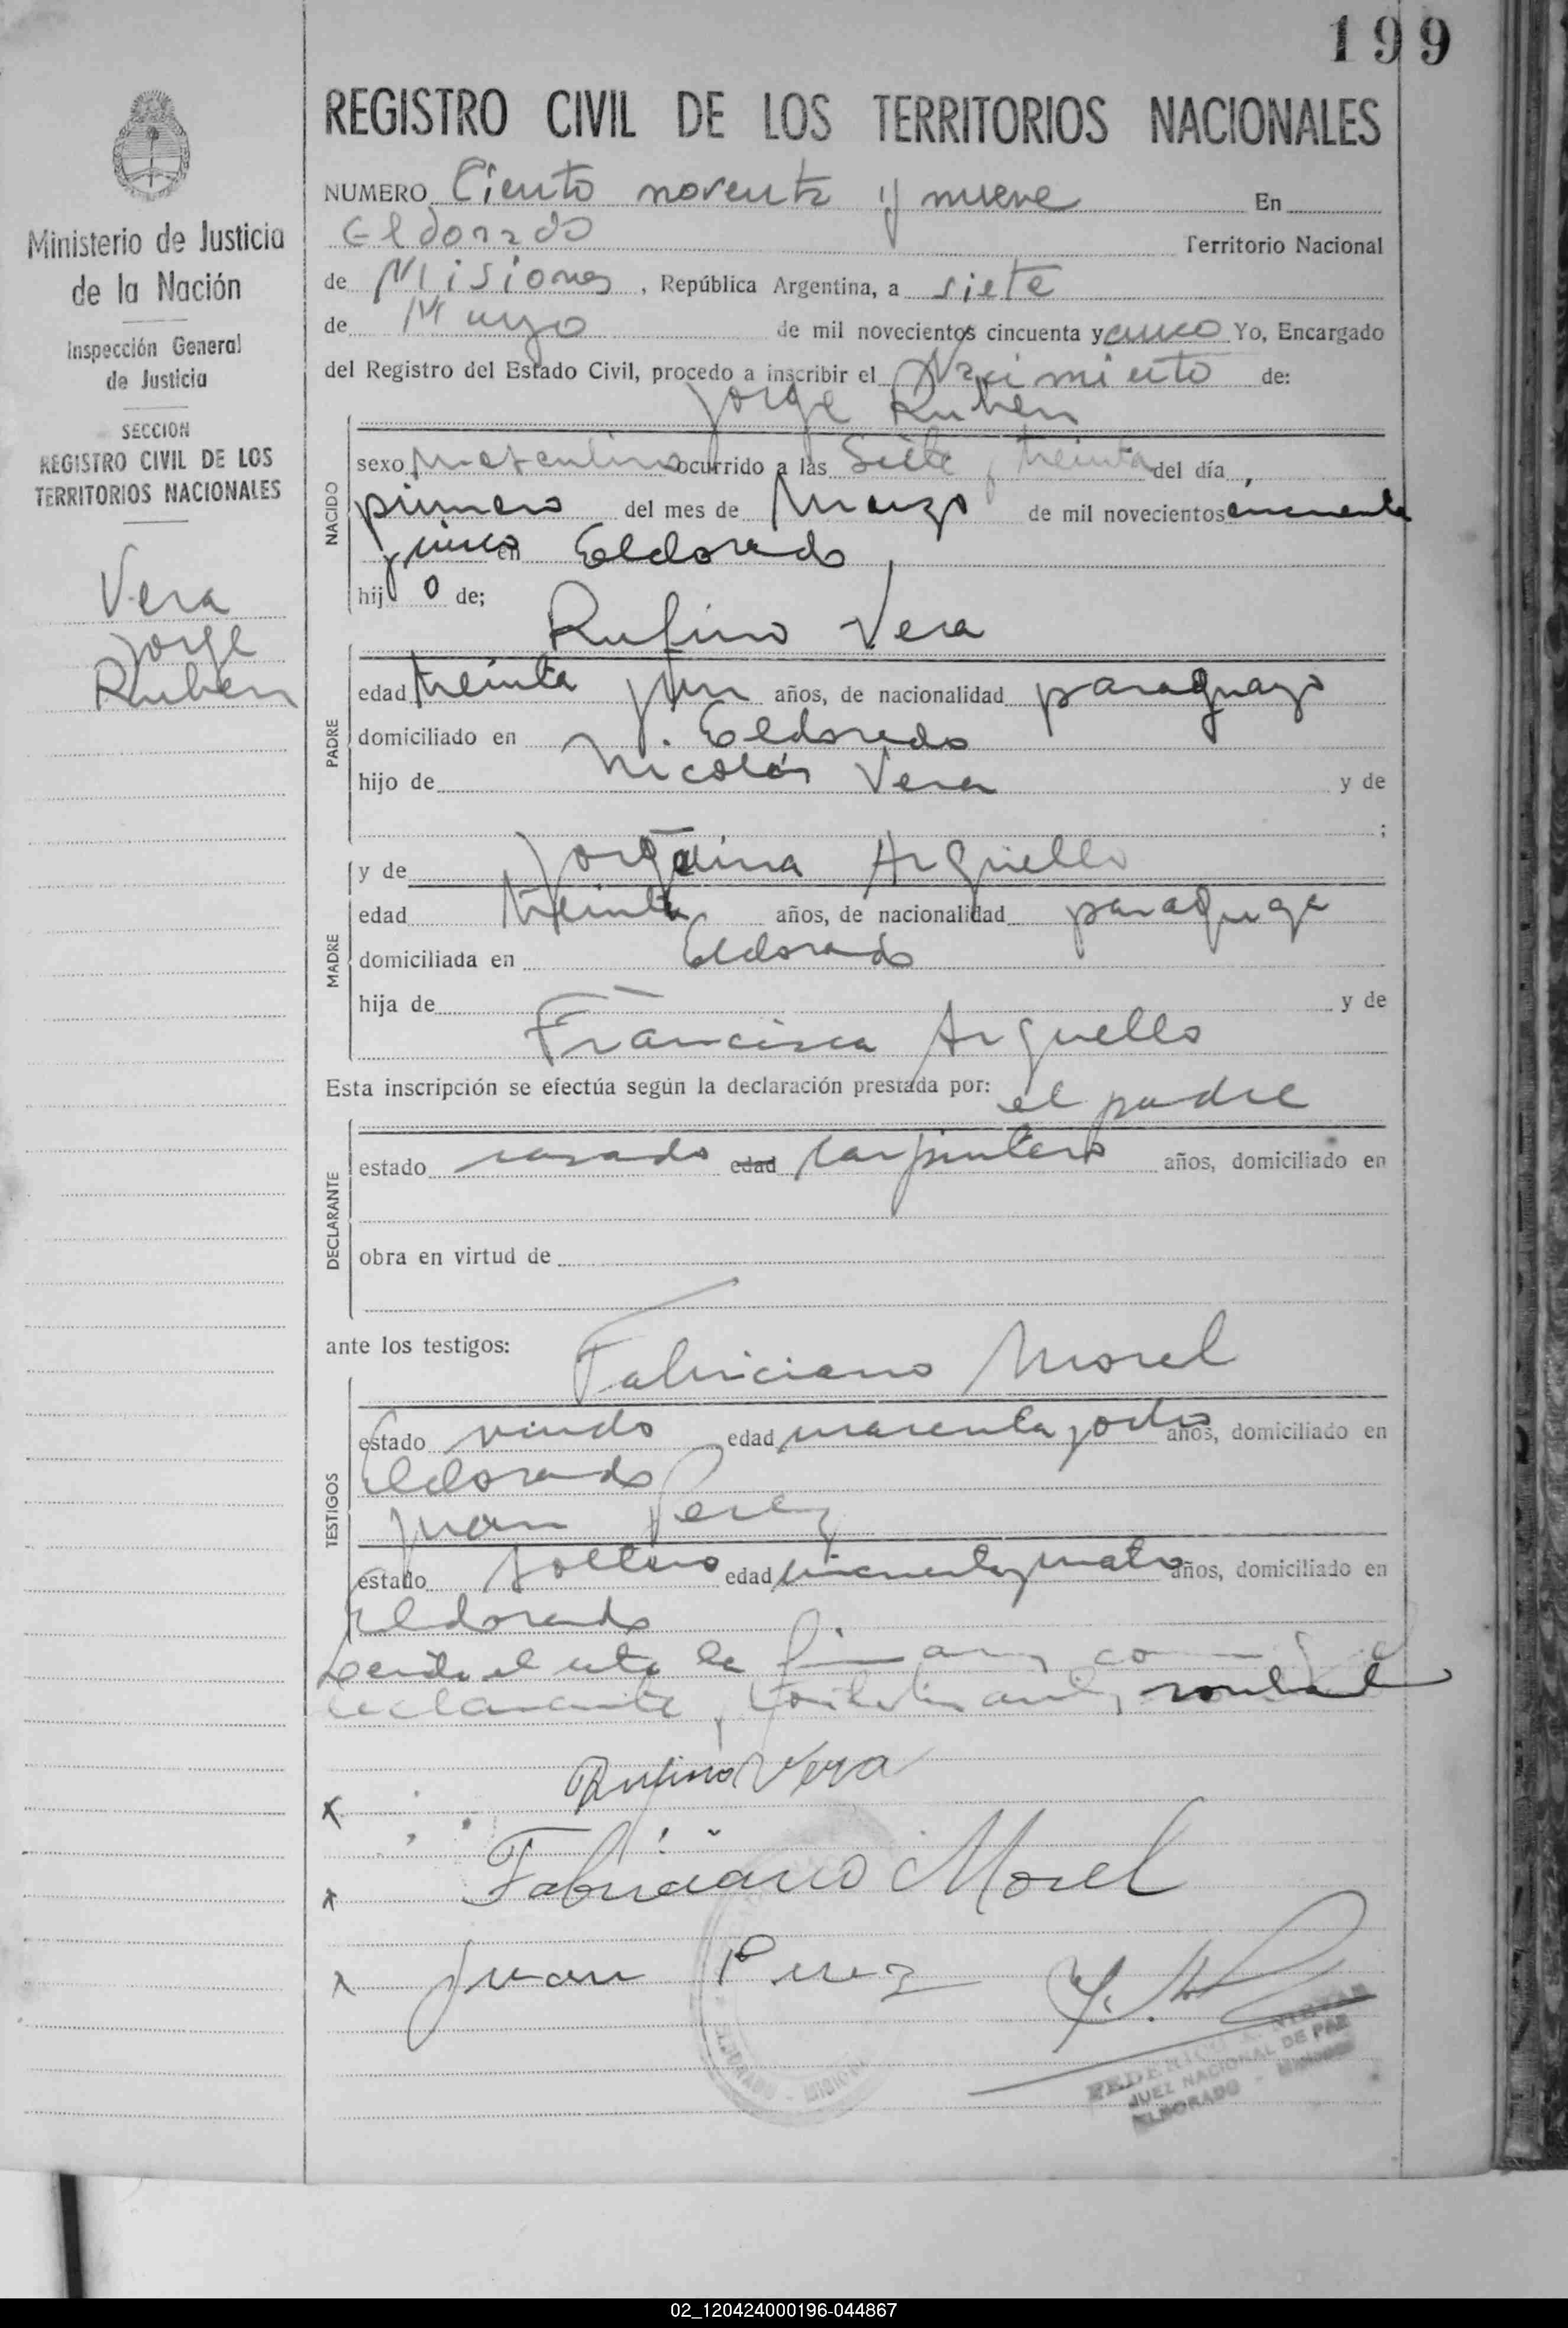 199
REGISTRO CIVIL DE LOS TERRITORIOS NACIONALES
Ministerio de Justicia
de la Nación
Inspección General
de Justicia
SECCION
REGISTRO CIVIL DE LOS
TERRITORIOS NACIONALES
Vera
Jorge
Ruben
NUMERO Ciento noventa y nueve En
Eldorado Territorio Nacional
de Misiones, República Argentina, a siete
de Mayo de mil novecientos cincuenta y cinco Yo, Encargado
del Registro del Estado Civil, procedo a inscribir el Nacimiento de:
Jorge Ruben
NACIDO
sexo masculino ocurrido a las Siete y treinta del día
primero del mes de Marzo de mil novecientos cincuenta
y cinco en Eldorado
hijo de;
Rufino Vera
PADRE
edad treinta y un años, de nacionalidad paraguayo
domiciliado en Eldorado
hijo de Nicolás Vera y de
;
MADRE
y de Jorgelina Arguello
edad treinta años, de nacionalidad paraguaya
domiciliada en Eldorado
hija de y de
Francisca Arguello
Esta inscripción se efectúa según la declaración prestada por:
el padre
DECLARANTE
estado casado edad carpintero años, domiciliado en
obra en virtud de
ante los testigos:
Fabriciano Morel
TESTIGOS
estado viudo edad cuarenta y ocho años, domiciliado en
Eldorado
Juan Perez
estado soltero edad cincuenta y cuatro años, domiciliado en
Eldorado
Leida el acta la firman con el
declarante,
Rufino Vera
Fabriciano Morel
Juan Perez
JUEZ NACIONAL DE PAZ
ELDORADO - Misiones
ELDORADO - MISIONES
02_120424000196-044867